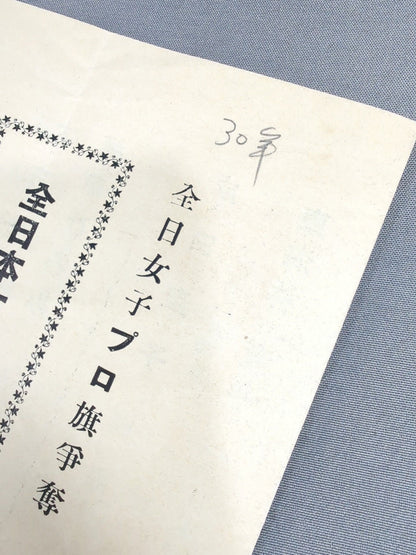 30年
全日女子プロ旗爭奪
全日本